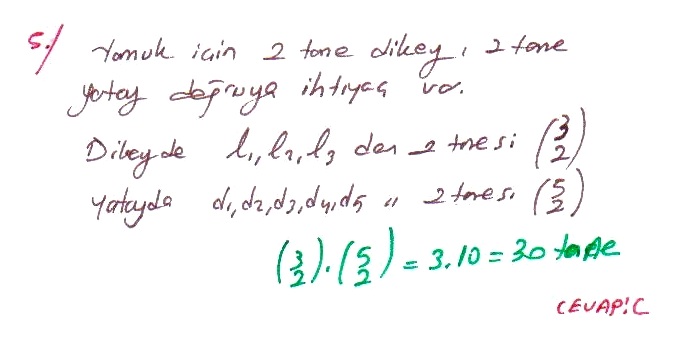 5./ Yamuk için 2 tane dikey, 2 tane
yatay doğruya ihtiyaç var.
Dikeyde l₁, l₂, l₃ den 2 tnesi (3 2)
Yatayda d₁, d₂, d₃, d₄, d₅ " 2 tanesi (5 2)
(3 2) . (5 2) = 3.10 = 30 tane
CEVAP: C